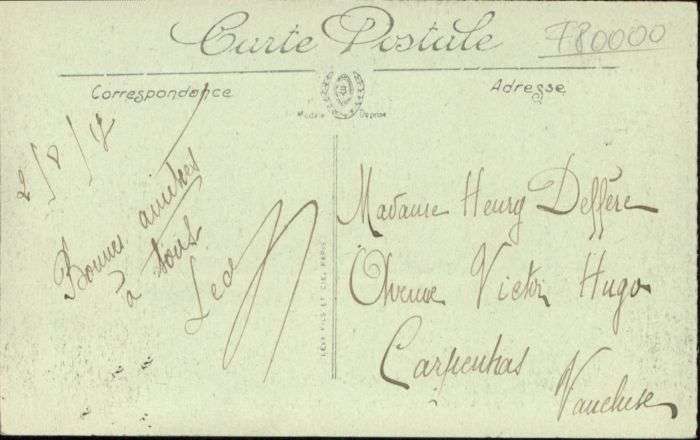 Carte Postale
780000
Correspondance
Adresse
Modèle Déposé
2/8/18
Bonnes amitiés
à tous
LEVY FILS ET CIE, PARIS
Madame Henry Deffère
Avenue Victor Hugo
Carpentras
Vaucluse